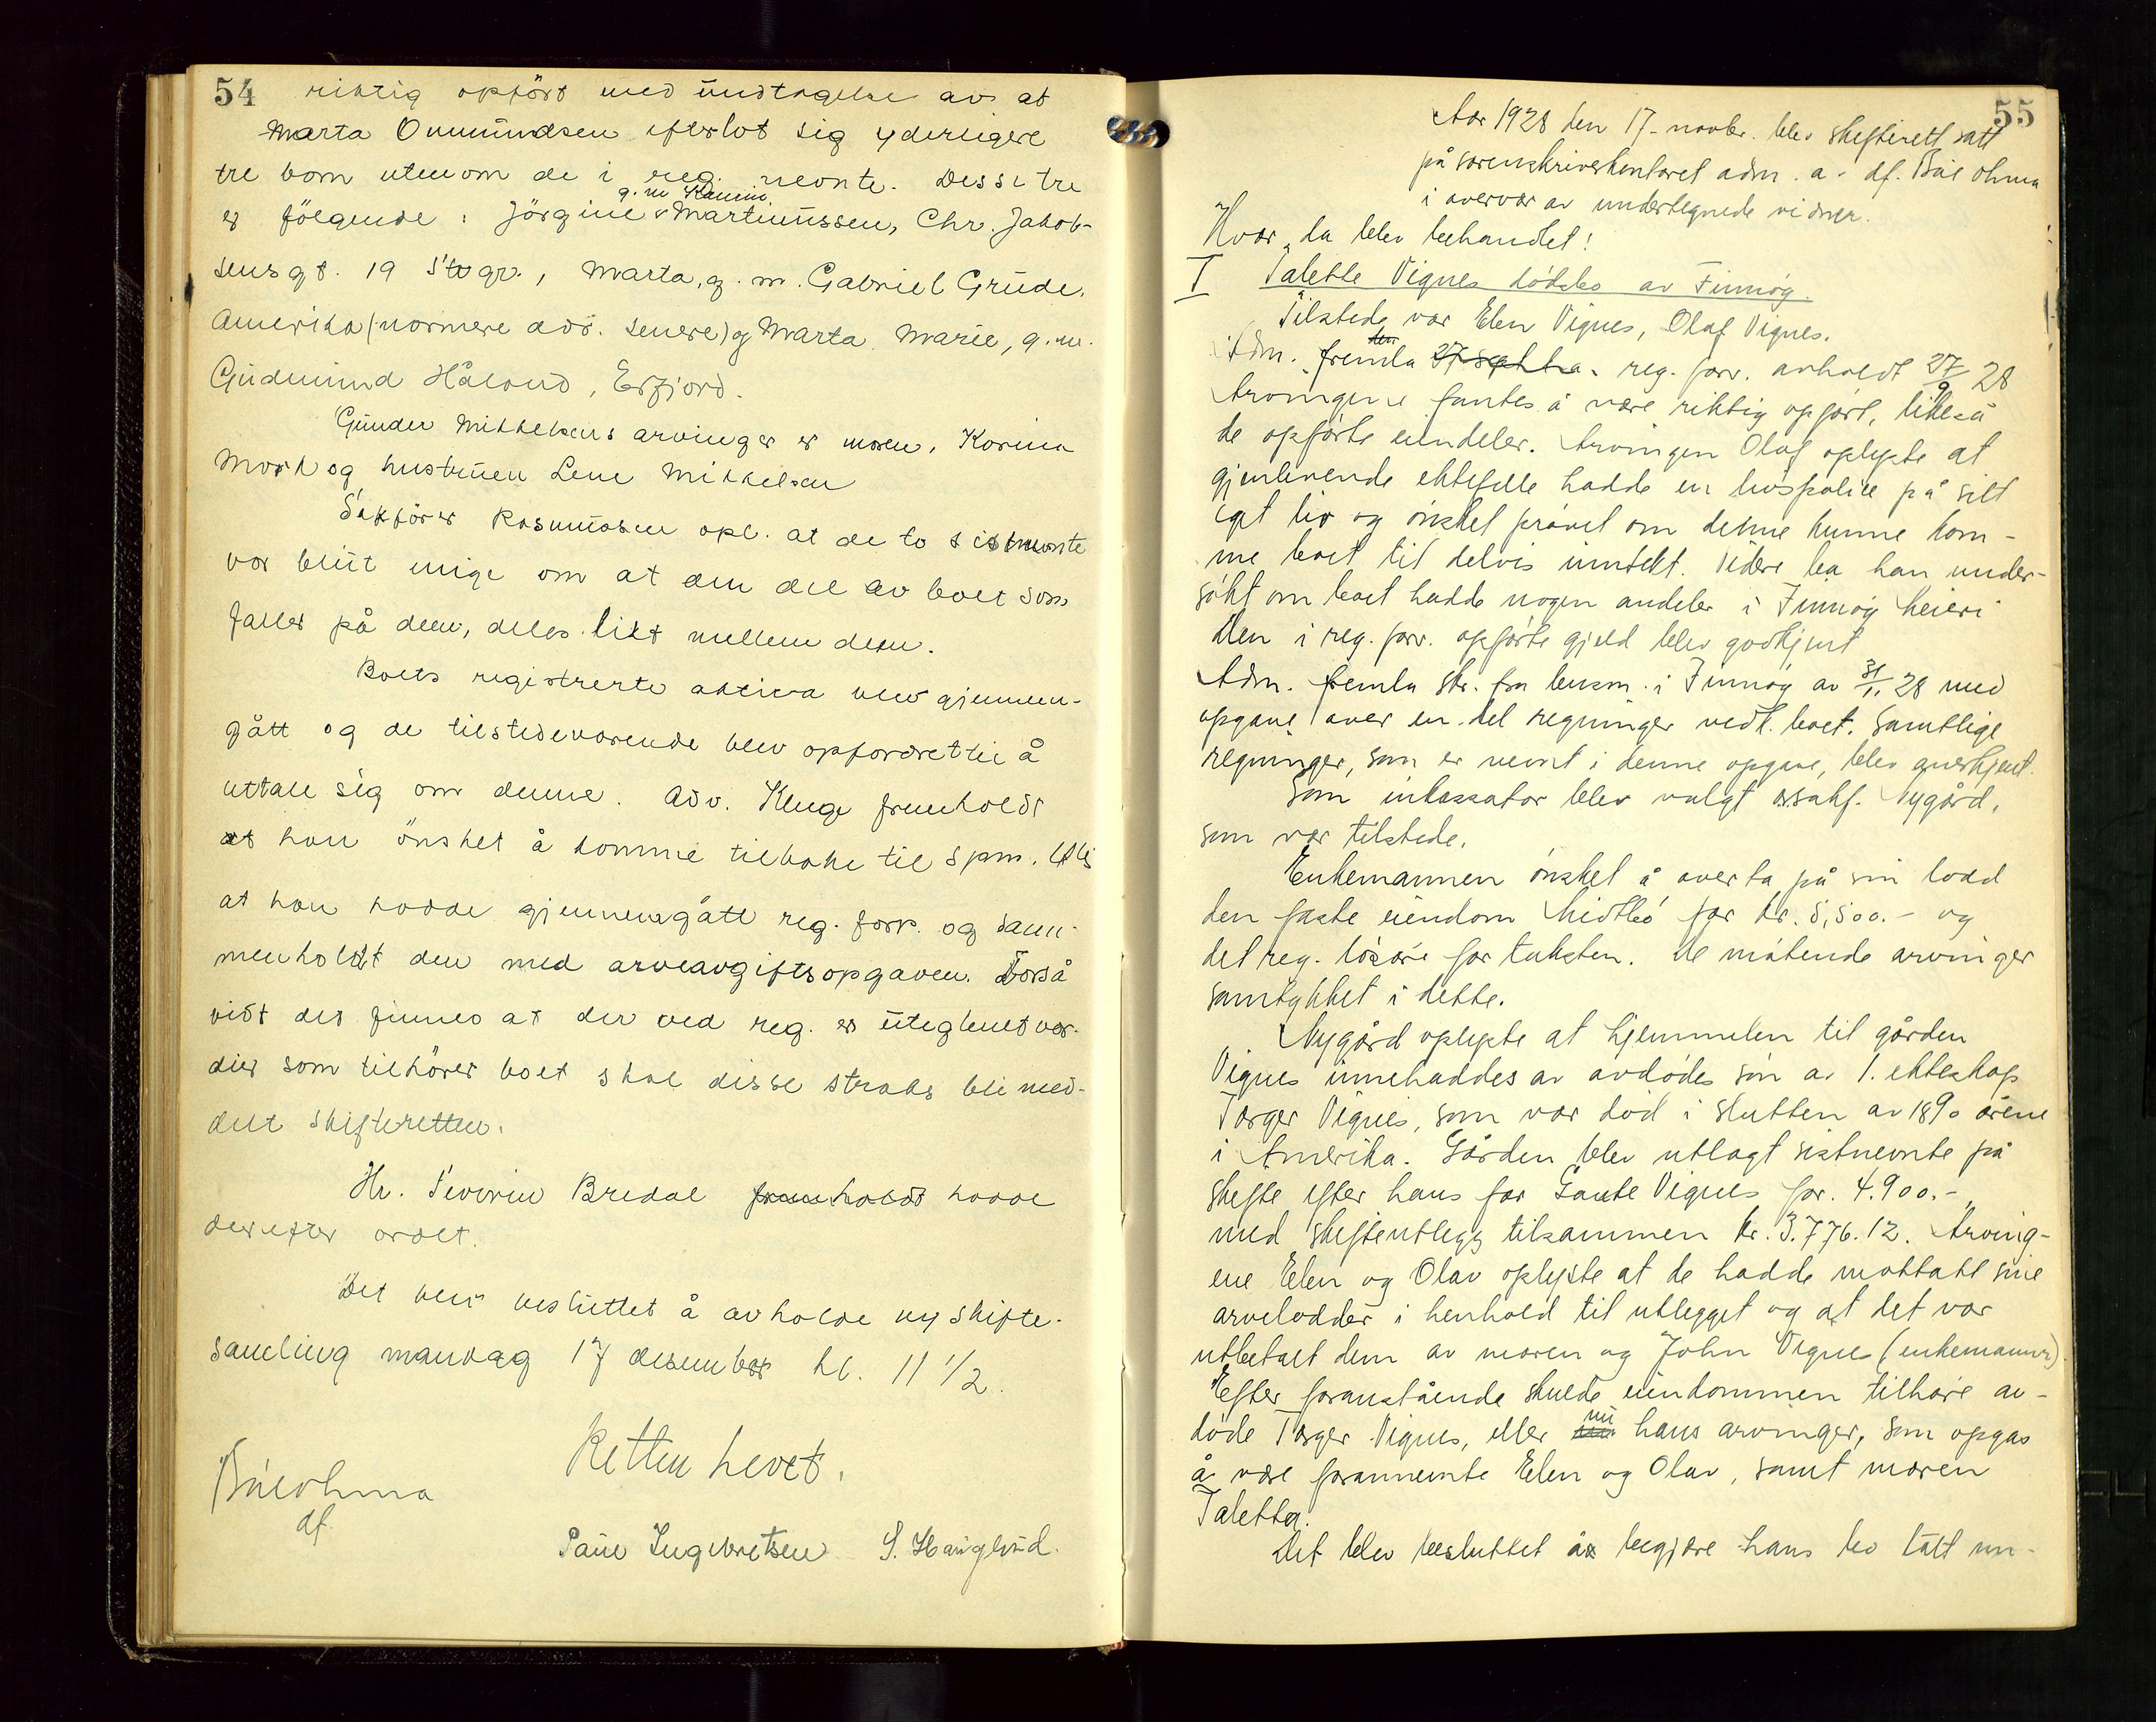 54
riktig opført med undtagelse av at
Marta Ommundsen efterlot sig yderligere
tre barn utenom de i reg. nevnte. Disse tre
g. m.
er følgende: Jørgine Martinussen, Chr. Jakob-
sensgt. 19 Stvgr., Marta, g. m. Gabriel Grude,
Amerika (nærmere adr. senere) og Marta Marie, g. m.
Gudmund Håland, Erfjord.
Gunder Mikkelsens arvinger er moren, Korina
Mork og hustruen Lene Mikkelsen
Sakfører Rasmussen opl. at de to sistnevnte
var blitt enige om at den del av boet som
faller på dem, deles likt mellem dem.
Boets registrerte aktiva blev gjennem-
gått og de tilstedeværende blev opfordret til å
uttale sig om denne. Adv. Kluge fremholdt
at han ønsket å komme tilbake til spm.
at han hadde gjennemgått reg. forr. og sam-
menholdt den med arveavgiftsopgaven. Forså
vidt det finnes at der ved reg. er uteglemt ver-
dier som tilhører boet skal disse straks bli med-
delt skifteretten.
Hr. Severin Bredal fremholdt hadde
derefter ordet.
Det blev besluttet å avholde ny skifte-
samling mandag 17 desember kl. 11 1/2.
Retten hevet.
df.
Paul Ingebretsen S. Hauglund.
55
Aar 1928 den 17. novbr. blev skifterett satt
på sorenskriverkontoret adm. a. df.
i overvær av undertegnede vidner.
Hvor da blev behandlet!
I Talette Vignes dødsbo av Finnøy.
Tilstede var Elen Vignes, Olaf Vignes.
den
Adm. fremla 27 septbr. reg. forr. avholdt 27/9 28
Arvingene fantes å være riktig opført, likeså
de opførte eiendeler. Arvingen Olaf oplyste at
gjenlevende ektefelle hadde en livspolise på sitt
eget liv og ønsket prøvet om denne kunne kom-
me boet til delvis inntekt. Videre ba han under-
søkt om boet hadde nogen andeler i Finnøy Meieri
Den i reg. forr. opførte gjeld blev godkjent
Adm. fremla skr. fra lensm. i Finnøy av 31/11 28 med
opgave over en del regninger vedk. boet. Samtlige
regninger, som er nevnt i denne opgave, blev anerkjent.
Som inkassator blev valgt o.r.sakf. Nygård,
som var tilstede.
Enkemannen ønsket å overta på sin lodd
den faste eiendom Midtbø for kr. 5,500.- og
det reg. løsøre for taksten. De møtende arvinger
samtykket i dette.
Nygård oplyste at hjemmelen til gården
Vignes innehaddes av avdødes søn av 1. ekteskap
Torger Vignes, som var død i slutten av 1890 årene
i Amerika. Gården blev utlagt sistnevnte på
skifte efter hans far Gaute Vignes for. 4.900.-
med skifteutlegg tilsammen kr. 3.776.12. Arving-
ene Elen og Olav oplyste at de hadde mottatt sine
arvelodder i henhold til utlegget og at det var
utbetalt dem av moren og John Vignes (enkemannen).
Efter foranstående skulde eiendommen tilhøre av-
døde Torger Vignes, eller nu hans arvinger, som opgas
å være forannevnte Elen og Olav, samt moren
Taletta.
Det blev besluttet å begjære hans bo tatt un-